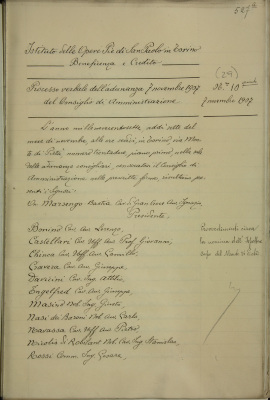 527
Istituto delle Opere Pie di San Paolo in Torino
Beneficenza e Credito
(29)
Processo verbale dell'adunanza 7 novembre 1907
N.° 10
del Consiglio di Amministrazione
7 novembre 1907
L'anno millenovecentosette, addì sette del
mese di novembre, alle ore sedici, in Torino, via Monte
di Pietà, numero trentadue, piano primo, nella sala
delle adunanze consigliari, convocatosi il Consiglio di
Amministrazione nelle prescritte forme, risultano presenti
i signori:
Presidente
Bonino Cav. Avv. Lorenzo
Castellari Cav. Uff. Avv. Prof. Giovanni
Chiesa Cav. Uff. Avv. Camillo
Cravero Cav. Avv. Giuseppe
Cav. Ing. Attilio
Engelfred Cav. Avv. Giuseppe
Masino Nob. Ing.
Nasi dei Baroni Nob. Avv. Carlo
Ravassa Cav. Uff. Avv. Pietro
Nicolis di Robilant Nob. Cav. Ing. Stanislao
Rossi Comm. Ing. Cesare